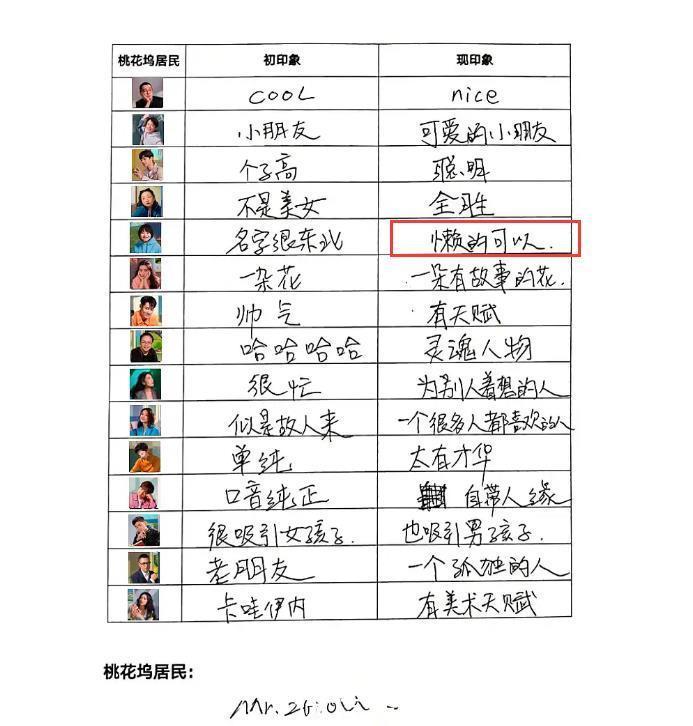 桃花坞居民 初印象 现印象
COOL nice
小朋友 可爱的小朋友
个子高 聪明
不是美女 全胜
名字很东北 懒的可以.
一朵花 一朵有故事的花.
帅气 有天赋
哈哈哈哈 灵魂人物
很忙 为别人着想的人
似是故人来 一个很多人都喜欢的人
单纯 太有才华
口音纯正 自带人缘
很吸引女孩子. 也吸引男孩子.
老朋友 一个孤独的人
卡哇伊内 有美术天赋
桃花坞居民：
Mr.